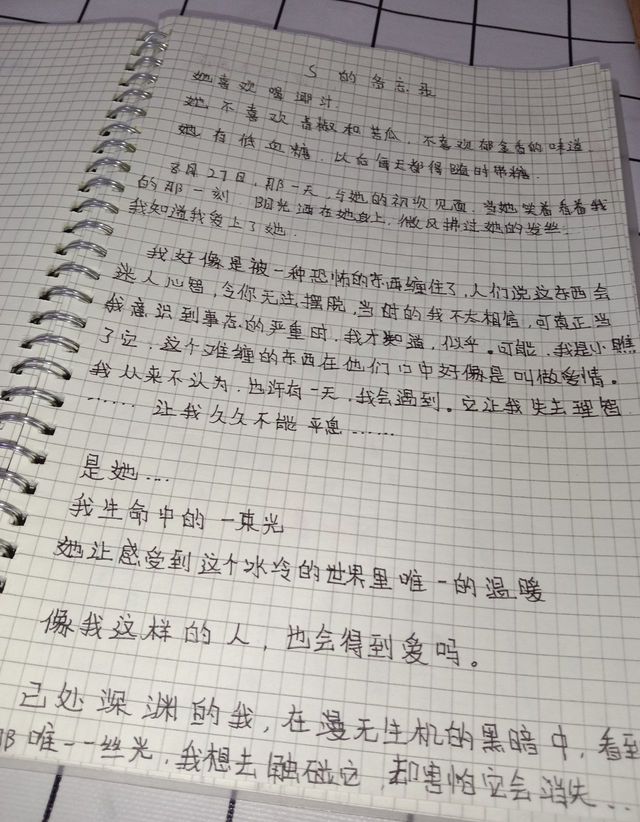 S 的备忘录
她喜欢喝椰汁.
她不喜欢青椒和苦瓜，不喜欢郁金香的味道.
她有低血糖，以后每天都得随时带糖.
8月27日，那一天，与她的初次见面，当她笑着看着我
的那一刻 阳光洒在她身上，微风拂过她的发丝.
我知道我爱上了她.
我好像是被一种恐怖的东西缠住了，人们说这东西会
迷人心智，令你无法摆脱，当时的我不太相信，可真正当
我意识到事态的严重时，我才知道，似乎。可能，我是小瞧
了它，这个难缠的东西在他们口中好像是叫做爱情。
我从来不认为，也许有一天，我会遇到。它让我失去理智
…… 让我久久不能平息……
是她…
我生命中的一束光
她让感受到这个冰冷的世界里唯一的温暖
像我这样的人，也会得到爱吗。
已处深渊的我，在漫无生机的黑暗中，看到
那唯一一丝光，我想去触碰它，却害怕它会消失…